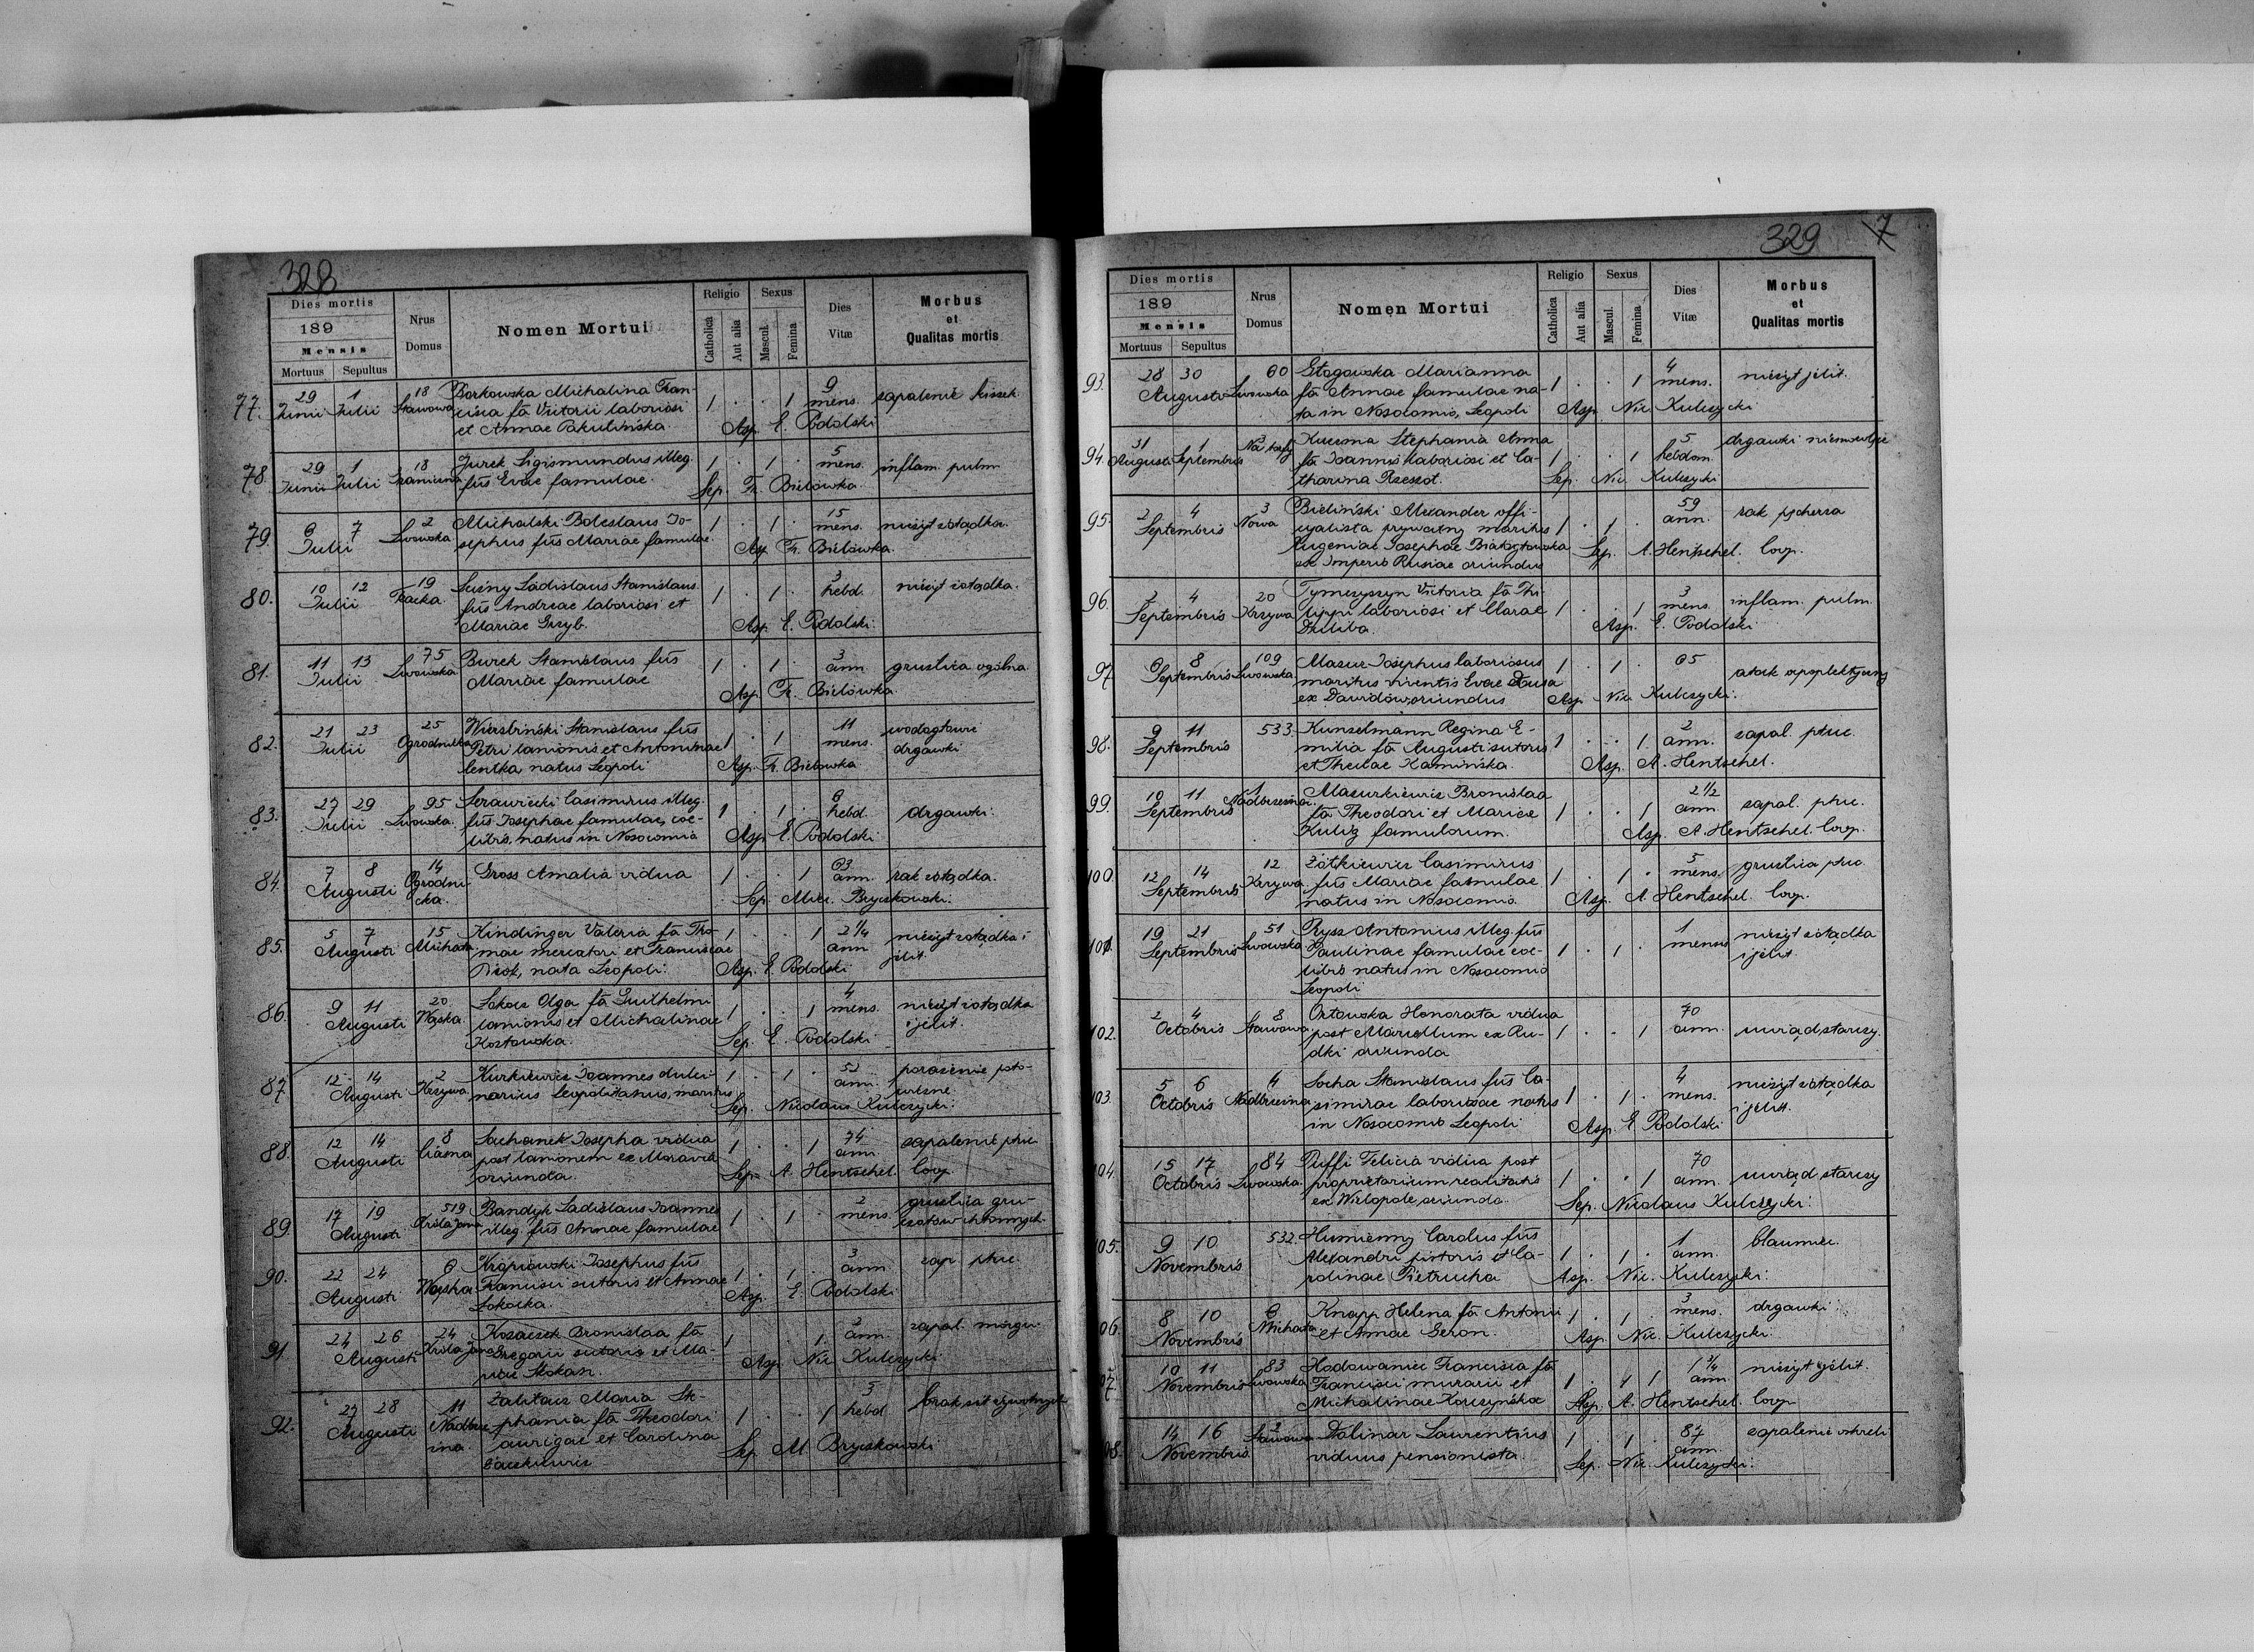 328
Dies mortis
189
Mensis
Mortuus Sepultus
Nrus Domus
Nomen Mortui
Religio
Catholica
Aut alia
Sexus
Mascul.
Femina
Dies Vitæ
Morbus et Qualitas mortis
77. 29 1 18 Borkowska Michalina Fran- 9
Junii Julii Stawowa cisca fa Victorii laboriosi 1 . . 1 mens. zapalenie kiszek
et Annae Pakulińska. Asp. E. Podolski
78. 29 1 18 Jurek Sigismundus illeg. 1 . 1 . 5
Junii Julii fius Evae famulae. mens. inflam. pulm
Sep. Fr. Bielówka.
79. 6 7 2 Michalski Boleslaus Jo- 1 . 1 . 15
Julii Lwowska sephus fius Mariae famulae. mens. nieżyt żołądka.
Asp. Fr. Bielówka.
80. 10 12 19 Ladislaus Stanislaus 3
Julii Tkacka. fius Andreae laboriosi et 1 . 1 . hebd. nieżyt żołądka.
Mariae Grzyb. Asp. E. Podolski.
81. 11 13 75 Burek Stanislaus fius 1 . 1 . 3
Julii Lwowska Mariae famulae ann. gruźlica ogólna
Asp. Fr. Bielówka.
82. 21 23 25 Wierzbiński Stanislaus fius 11 wodogłowie
Julii Ogrodnicka Petri lanionis et Antoninae 1 . 1 mens. drgawki
Centka natus Leopoli Asp. Fr. Bielowka
83. 27 29 95 Serawiecki Casimirus illeg. 6
Julii Lwowska. fius Josephae famulae, coe- 1 . 1 . hebd. drgawki.
libis, natus in Nosocomio Asp. E. Podolski
84. 7 8 14 Gross Amalia vidua 1 . . 1 63
Augusti Ogrodni- ann. rak żołądka.
cka. Sep. Mic. Bryczkowski.
85. 5 7 15 Kindinger Valeria fa Tho- 1 . . 1 2 1/4
Augusti Michała mae mercatori et Franciscae ann nieżyt żołądka i
nata Leopoli. Asp. E. Podolski jelit.
86. 9 11 20 Olga fa Guilhelmi 4
Augusti Wąska. lanionis et Michalinae 1 . . 1 mens. nieżyt żołądka
Kozłowska. Sep. E. Podolski i jelit.
87. 12 14 2 Kurkiewicz Joannes dulci- 1 . 1 . 52 porażenie
Augusti Krzywa narius Leopolitanus, maritus ann.
Sep. Nicolaus Kulczycki.
88. 12 14 8 Sachanek Josepha vidua 1 . . 1 74 zapalenie płuc
Augusti Ciasna post lanionem ex Moravia ann.
oriunda. Sep. A. Hentschel Coop.
89. 17 19 519 Bandyk Ladislaus Joannes 2 gruźlica gru-
Augusti Króla Jana illeg. fius Annae famulae 1 . 1 . mens. czołów chłonnych
90. 22 24 6 Kropiowski Josephus fius 3 zap płuc
Augusti Wąska Francisci sutoris et Annae 1 . 1 . ann.
Sokolka. Asp. E. Podolski
91. 24 26 24 Kozaczek Bronislaa fa 2 zapal. mózgu.
Augusti Króla Jana Gregorii sutoris et Ma- 1 . . 1. ann.
riae Stokan. Asp. Nic Kulczycki
92. 27 28 11 Maria Ste- 3 brak sił żywotnych
Augusti Nadbrze- phania fa Theodori 1 . . 1 hebd.
zina. aurigae et Carolina Sep. M. Bryczkowski

329 7
Dies mortis
189
Mensis
Mortuus Sepultus
Nrus Domus
Nomen Mortui
Religio
Catholica
Aut alia
Sexus
Mascul.
Femina
Dies Vitæ
Morbus et Qualitas mortis
93. 28 30 60 Marianna 4
Augusti Lwowska fa Annae famulae na- 1 . . 1 mens. nieżyt jelit.
ta in Nosocomio, Leopoli Asp. Nic. Kulczycki
94. 31 1 Kuczma Stephania Anna 5 drgawki niemowlęce
Augusti Septembris fa Joannis laboriosi et Ca- 1 . . 1 hebdom.
tharina Rzeszot. Sep. Nic. Kulczycki
95. 2 4 3 Bieliński Alexander offi- 59 rak pęcherza
Septembris Nowa cyalista prywatny maritus 1 . 1 . ann.
Eugeniae Josephae Białogłowska Sep. A. Hentschel. Coop.
ex Imperio Rusiae oriundus
96. 2 4 20 Tymczyszyn Victoria fa Phi- 3
Septembris Krzywa lippi laboriosi et Clarae 1 . . 1 mens. inflam. pulm.
Asp. E. Podolski
97. 6 8 109 Mazur Josephus laboriosus 1 . 1 . 65 atak apoplektyczny
Septembris Lwowska maritus viventis Evae Duza
ex Dawidów oriundus Asp Nic Kulczycki.
98. 9 11 533. Kunzelmann Regina E- 2
Septembris milia fa Augusti sutoris 1 . . 1. ann. zapal. płuc.
et Theclae Kamińska. Asp. A. Hentschel.
99. 10 11 1 Mazurkiewicz Bronislaa 2 1/2
Septembris Nadbrzezina. fa Theodori et Mariae 1 . . 1 ann. zapal. płuc.
famulorum. Asp. A. Hentschel. Coop.
100. 12 14 12 Żółkiewicz Casimirus 5 gruźlica płuc
Septembris Krzywa fius Mariae famulae 1 . 1 . mens.
natus in Nosocomio. Asp. A. Hentschel. Coop.
101. 19 21 51 Rysz Antonius illeg. fius 1 nieżyt żołądka
Septembris Lwowska Paulinae famulae coe- 1 . 1 . mensis i jelit.
libis natus in Nosocomio
Leopoli
102. 2 4 8 Orłowska Honorata vidua 70
Octobris Stawowa post Marcellum ex Ru- 1 . . 1 ann. uwiąd starczy.
dki oriunda
103. 5 6 4 Socha Stanislaus fius Ca- 4 nieżyt żołądka
Octobris Nadbrzezina simirae laboriosae natus 1 . 1 . mens. i jelit.
in Nosocomio Leopoli Asp. E. Podolski
104. 15 17 84 Puffi Felicia vidua post 70
Octobris Lwowska proprietarium realitatis 1 . . 1 ann. uwiąd starczy
ex Wielopole oriunda. Sep. Nicolaus Kulczycki.
105. 9 10 532. Humienny Carolus fius 1 błonnica.
Novembris Alexandri pistoris et Ca- 1 . 1 . ann.
rolinae Pietrucha Asp. Nic. Kulczycki.
106. 8 10 6 Knapp Helena fa Antonii 1 . 1 3 drgawki.
Novembris Michała et Annae Geron. mens.
Asp. Nic. Kulczycki.
107. 10 11 83 Hodowaniec Francisca fa 1 3/4 nieżyt jelit.
Novembris Lwowska Francisci murarii et 1 . 1 1 ann.
Michalinae Korczyńska Asp. A. Hentschel. Coop
108. 14 16 2 Dolinar Laurentius 1 . 1 . 87 zapalenie oskrzeli
Novembris. Stawowa viduus pensionista. ann.
Sep. Nic. Kulczycki.